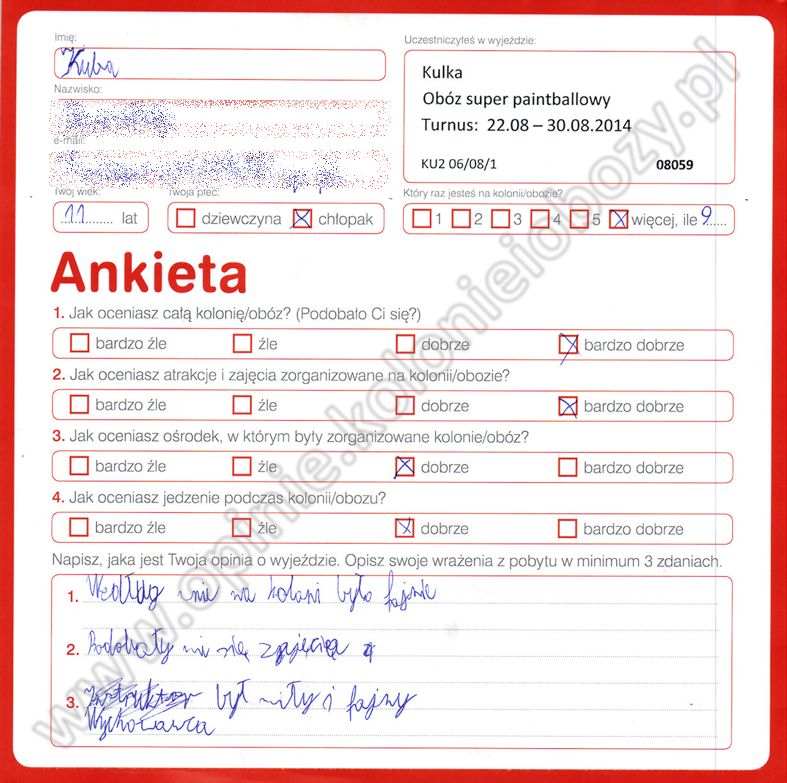 Imię:
Kuba
Uczestniczyłeś w wyjeździe:
Kulka
Obóz super paintballowy
Turnus: 22.08 – 30.08.2014
KU2 06/08/1 08059
Nazwisko:
e-mail:
Twój wiek:
11 lat
Twoja płeć:
dziewczyna chłopak
Który raz jesteś na kolonii/obozie?
1 2 3 4 5 więcej, ile 9
Ankieta
1. Jak oceniasz całą kolonię/obóz? (Podobało Ci się?)
bardzo źle źle dobrze bardzo dobrze
2. Jak oceniasz atrakcje i zajęcia zorganizowane na kolonii/obozie?
bardzo źle źle dobrze bardzo dobrze
3. Jak oceniasz ośrodek, w którym były zorganizowane kolonie/obóz?
bardzo źle źle dobrze bardzo dobrze
4. Jak oceniasz jedzenie podczas kolonii/obozu?
bardzo źle źle dobrze bardzo dobrze
Napisz, jaka jest Twoja opinia o wyjeździe. Opisz swoje wrażenia z pobytu w minimum 3 zdaniach.
1. Według mnie na koloni było fajnie
2. Podobały mi się zajęcia
3. Instruktor był miły i fajny
Wychowawca
www.opinie.kolonieiobozy.pl